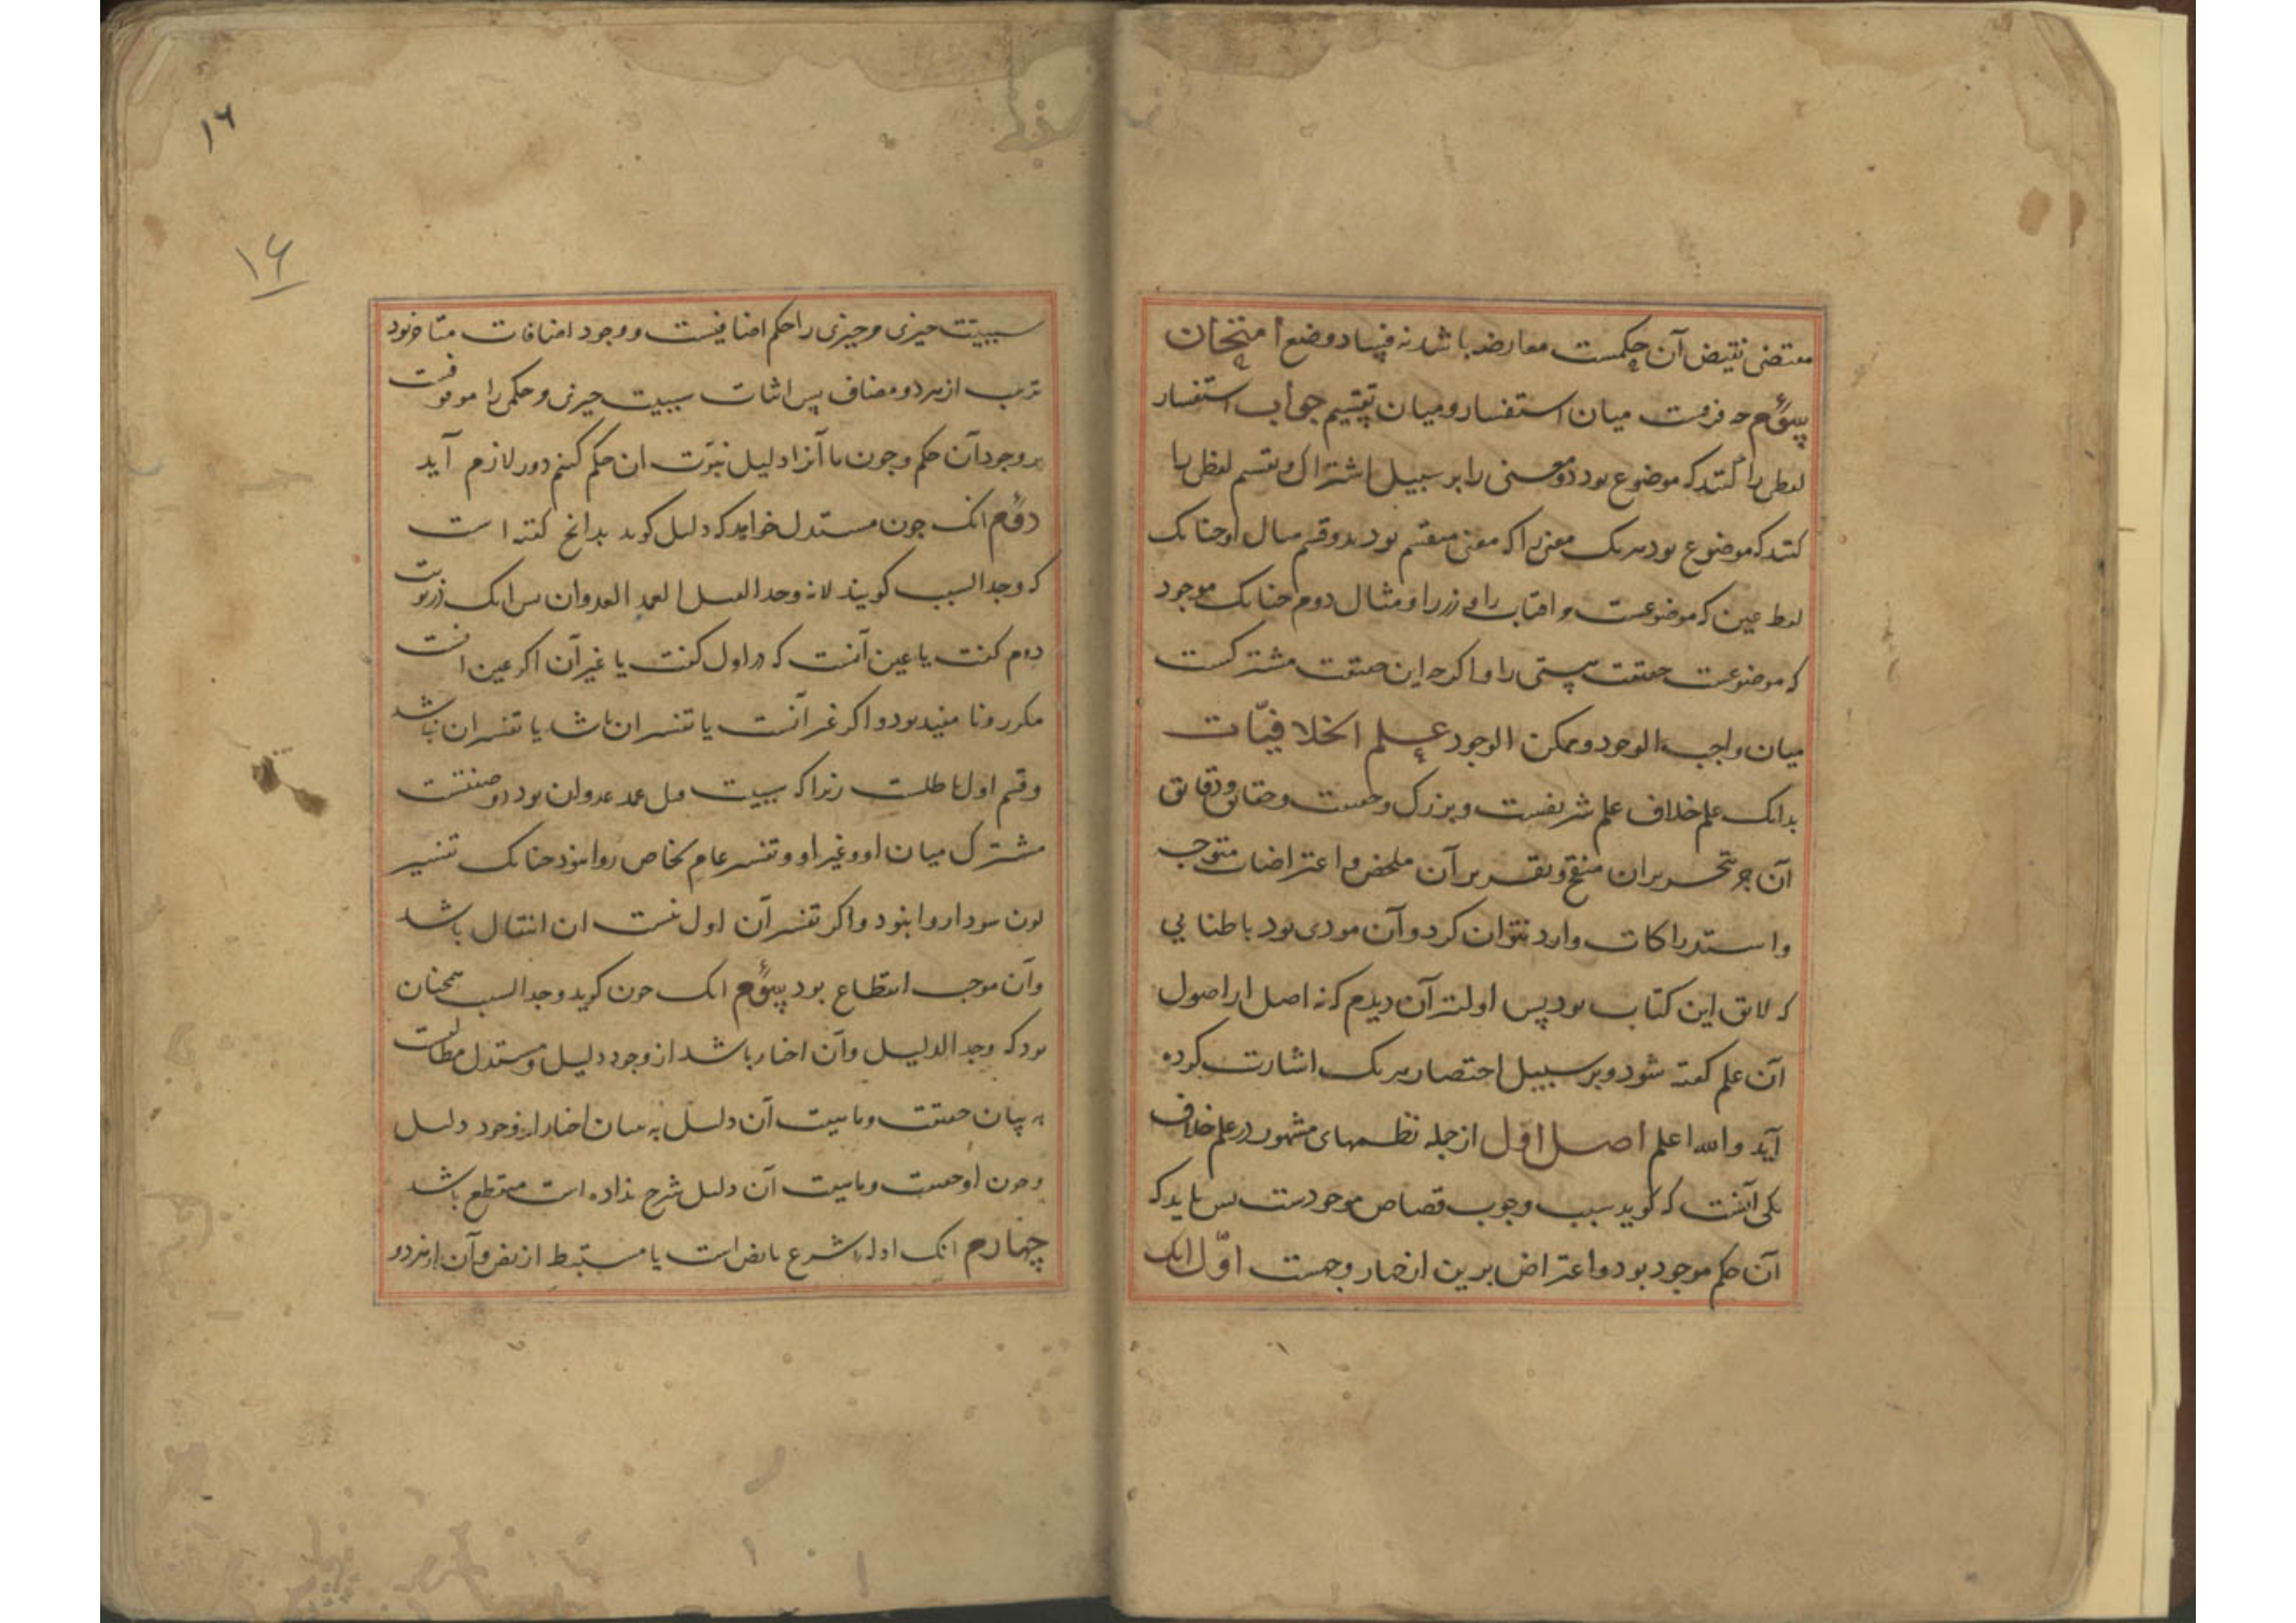 مقتضی نقیض آن حکمست معارضه باشد نه فساد وضع امتحان
سؤم چه فرقست میان استفسار و میان تقسیم جواب استفسار
لفظی را کنند که موضوع بود دو معنی را بر سبیل اشتراک و تقسیم لفظی را
کنند که موضوع بود هر یک معنی را که معنی منقسم بود بدو قسم مثال او چنانک
لفظ عین که موضوعست و افتاب را و زر را و مثال دوم چنانک موجود
که موضوعست حقیقت هستی را و اگرچه این حقیقت مشترکست
میان واجب الوجود و ممکن الوجود علم الخلافیّات
بدانک علم خلاف علم شریفست و بزرگ و حقایق و دقایق
آن جز بتحریران منقح و تقریر آن ملخص و اعتراضات متوجه
و استدراکات وارد نتوان کرد و آن مودی بود باطنابی
که لایق این کتاب بود پس اولیتر آن دیدم که نه اصل از اصول
آن علم گفته شود و بر سبیل اختصار هر یک اشارت کرده
آید والله اعلم اصل اوّل از جمله نظمهای مشهور در علم خلاف
یکی آنست که گوید سبب وجوب قصاص موجودست پس باید که
آن حکم موجود بود و اعتراض برین از چهار وجهست اوّل انک
سببیت چیزی و چیزی را حکم اضافیست و وجود اضافات متاخر بود
از هر دو مضاف پس اثبات سببیت چیزی و حکمی را موقوفست
بر وجود آن حکم و چون ما آنرا دلیل ثبوت ان حکم کنیم دور لازم آید
دوّم انک چون مستدل خواهد که دلیل گوید بدانچ گفته است
که وجد السبب گویند لانه وجد القتل العمد العدوان پس انک
دوم گفت یا عین آنست که در اول گفت یا غیر آن اگر عین انست
مکرر و نا مفید بود و اگر غیر آنست یا تفسیر ان باشد یا تفسیر ان نباشد
و قسم اول باطلست زیرا که سببیت قتل عمد عدوان بود و صفتست
مشترک میان او و غیر او و تفسیر عام بخاص روا نبود چنانک تفسیر
لون بسواد روا نبود و اگر تفسیر آن اول نیست ان انتقال باشد
و آن موجب انقطاع بود سؤم انک چون گوید وجد السبب همچنان
بود که وجد الدلیل و آن اخبار باشد از وجود دلیل و مستدل مطالبست
به بیان حقیقت و ماهیت آن دلیل نه ببیان اخبار از وجود دلیل
و چون او حقیقت و ماهیت آن دلیل شرح نداده است منقطع باشد
چهارم انک ادله شرع یا نص است یا مستنبط از نص و آن از هر دو
۱۶
۱۶